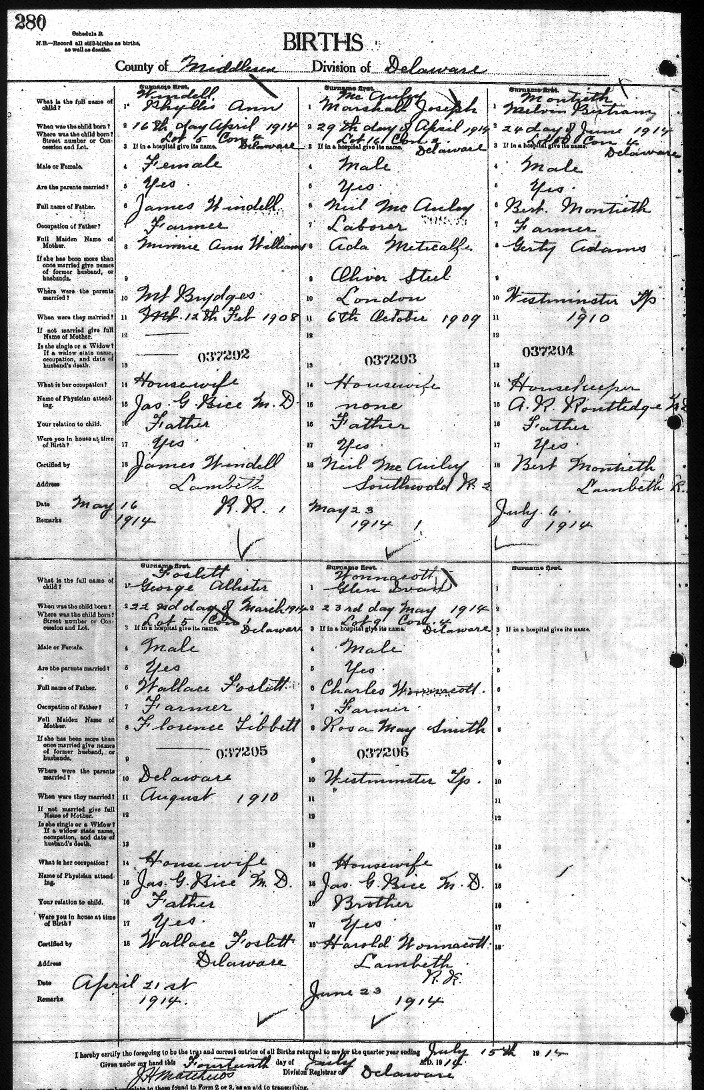 280
Schedule B.
N.B.—Record all still-births as births,
as well as deaths.
BIRTHS
County of Middlesex Division of Delaware
Surname first. Surname first. Surname first.
Windell Mc Auley Montieth
What is the full name of child? 1 Phyllis Ann 1 Marshall Joseph 1 Melvin Bertram
When was the child born? 2 16th day April 1914 2 29th day of April 1914 2 24 day of June 1914
Where was the child born? Street number or Concession and Lot. Lot Con 4 Lot 16 Con Con 4
3 If in a hospital give its name. Delaware 3 If in a hospital give its name. Delaware 3 If in a hospital give its name. Delaware
Male or Female. 4 Female 4 Male 4 Male
Are the parents married? 5 Yes 5 Yes 5 Yes
Full name of Father. 6 James Windell 6 Neil Mc Auley 6 Bert. Montieth
Occupation of Father? 7 Farmer 7 Laborer 7 Farmer
Full Maiden Name of Mother. 8 Minnie Ann Williams 8 Ada Metcalfe 8 Gerty Adams
If she has been more than once married give names of former husband, or husbands. 9 9 Oliver Steel 9
Where were the parents married? 10 Mt Brydges 10 London 10 Westminster Tp
When were they married? 11 12th Feb 1908 11 6th October 1909 11 1910
If not married give full Name of Mother. 12 12 12
Is she single or a Widow? If a widow state name, occupation, and date of husband's death. 037202 037203 037204
13 13 13
What is her occupation? 14 Housewife 14 Housewife 14 Housekeeper
Name of Physician attending. 15 Jas. G. Bice M.D. 15 none 15 A. R. Routledge
Your relation to child. 16 Father 16 Father 16 Father
Were you in house at time of Birth? 17 Yes 17 Yes 17 Yes.
Certified by 18 James Windell 18 Neil Mc Auley 18 Bert Montieth
Address Lambeth Southwold R. 2 Lambeth R.
Date May 16 R.R. 1 May 23 July. 6.
Remarks 1914 1914 1914
Surname first. Surname first. Surname first.
Foslett Wonnacott
What is the full name of child? 1 George Allister 1 Glen Ivan 1
When was the child born? 2 22nd day of March 1914 2 23rd day May 1914 2
Where was the child born? Street number or Concession and Lot. Lot 5 Con 1 Lot 9 Con. 4
3 If in a hospital give its name. Delaware 3 If in a hospital give its name. Delaware 3 If in a hospital give its name.
Male or Female. 4 Male 4 Male 4
Are the parents married? 5 Yes 5 Yes. 5
Full name of Father. 6 Wallace Foslett 6 Charles Wonnacott. 6
Occupation of Father? 7 Farmer 7 Farmer 7
Full Maiden Name of Mother. 8 Florence Tibbett 8 Rosa May Smith 8
If she has been more than once married give names of former husband, or husbands. 037205 037206
9 9 9
Where were the parents married? 10 Delaware 10 Westminster Tp. 10
When were they married? 11 August 1910 11 11
If not married give full Name of Mother. 12 12 12
Is she single or a Widow? If a widow state name, occupation, and date of husband's death. 13 13 13
What is her occupation? 14 Housewife 14 Housewife 14
Name of Physician attending. 15 Jas. G. Bice M.D. 15 Jas. G. Bice M.D. 15
Your relation to child. 16 Father 16 Brother 16
Were you in house at time of Birth? 17 Yes. 17 Yes 17
Certified by 18 Wallace Foslett 18 Harold Wonnacott. 18
Address Delaware Lambeth
Date April 21st June 23 R.R.
Remarks 1914. 1914
I hereby certify the foregoing to be the true and correct entries of all Births returned to me for the quarter year ending July 15th 1914
Given under my hand this Fourteenth day of July A.D. 1914.
J H Matthews Division Registrar of Delaware